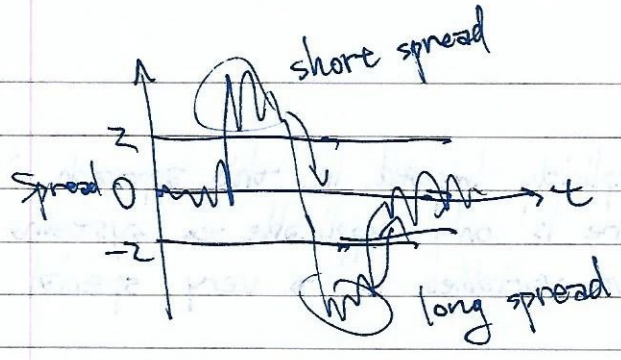 short spread
2
spread 0
t
-2
long spread